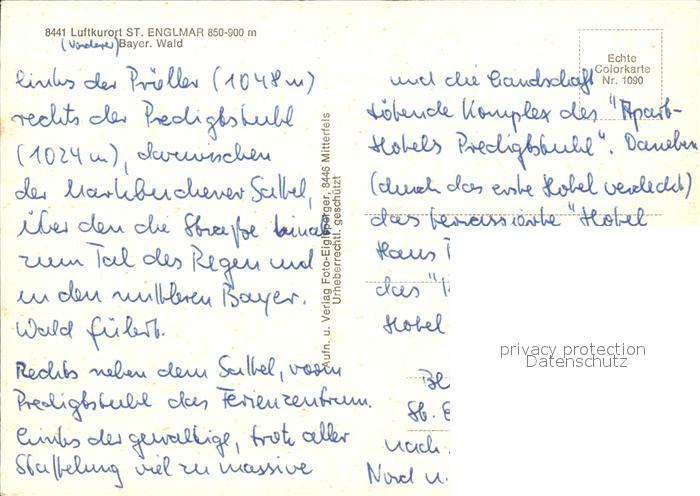 8441 Luftkurort ST. ENGLMAR 850-900 m
(Vorderer) Bayer. Wald
Links der Pröller (1048 m)
rechts der Predigtstuhl
(1024 m), dazwischen
der Markbuchener Sattel,
über den die Straße hinab
zum Tal des Regen und
in den mittleren Bayer.
Wald führt.
Rechts neben dem Sattel, vorm
Predigtstuhl das Ferienzentrum.
Links der gewaltige, trotz aller
Staffelung viel zu massive
Aufn. u. Verlag Foto-Eiglsperger, 8446 Mitterfels
Urheberrechtl. geschützt
Echte
Colorkarte
Nr. 1090
und die Landschaft
störende Komplex des "Apart-
Hotels Predigtstuhl". Daneben
(durch das erste Hotel verdeckt)
das terrassierte "Hotel
Haus
das
Hotel
St.
nach
Nord u.
privacy protection
Datenschutz